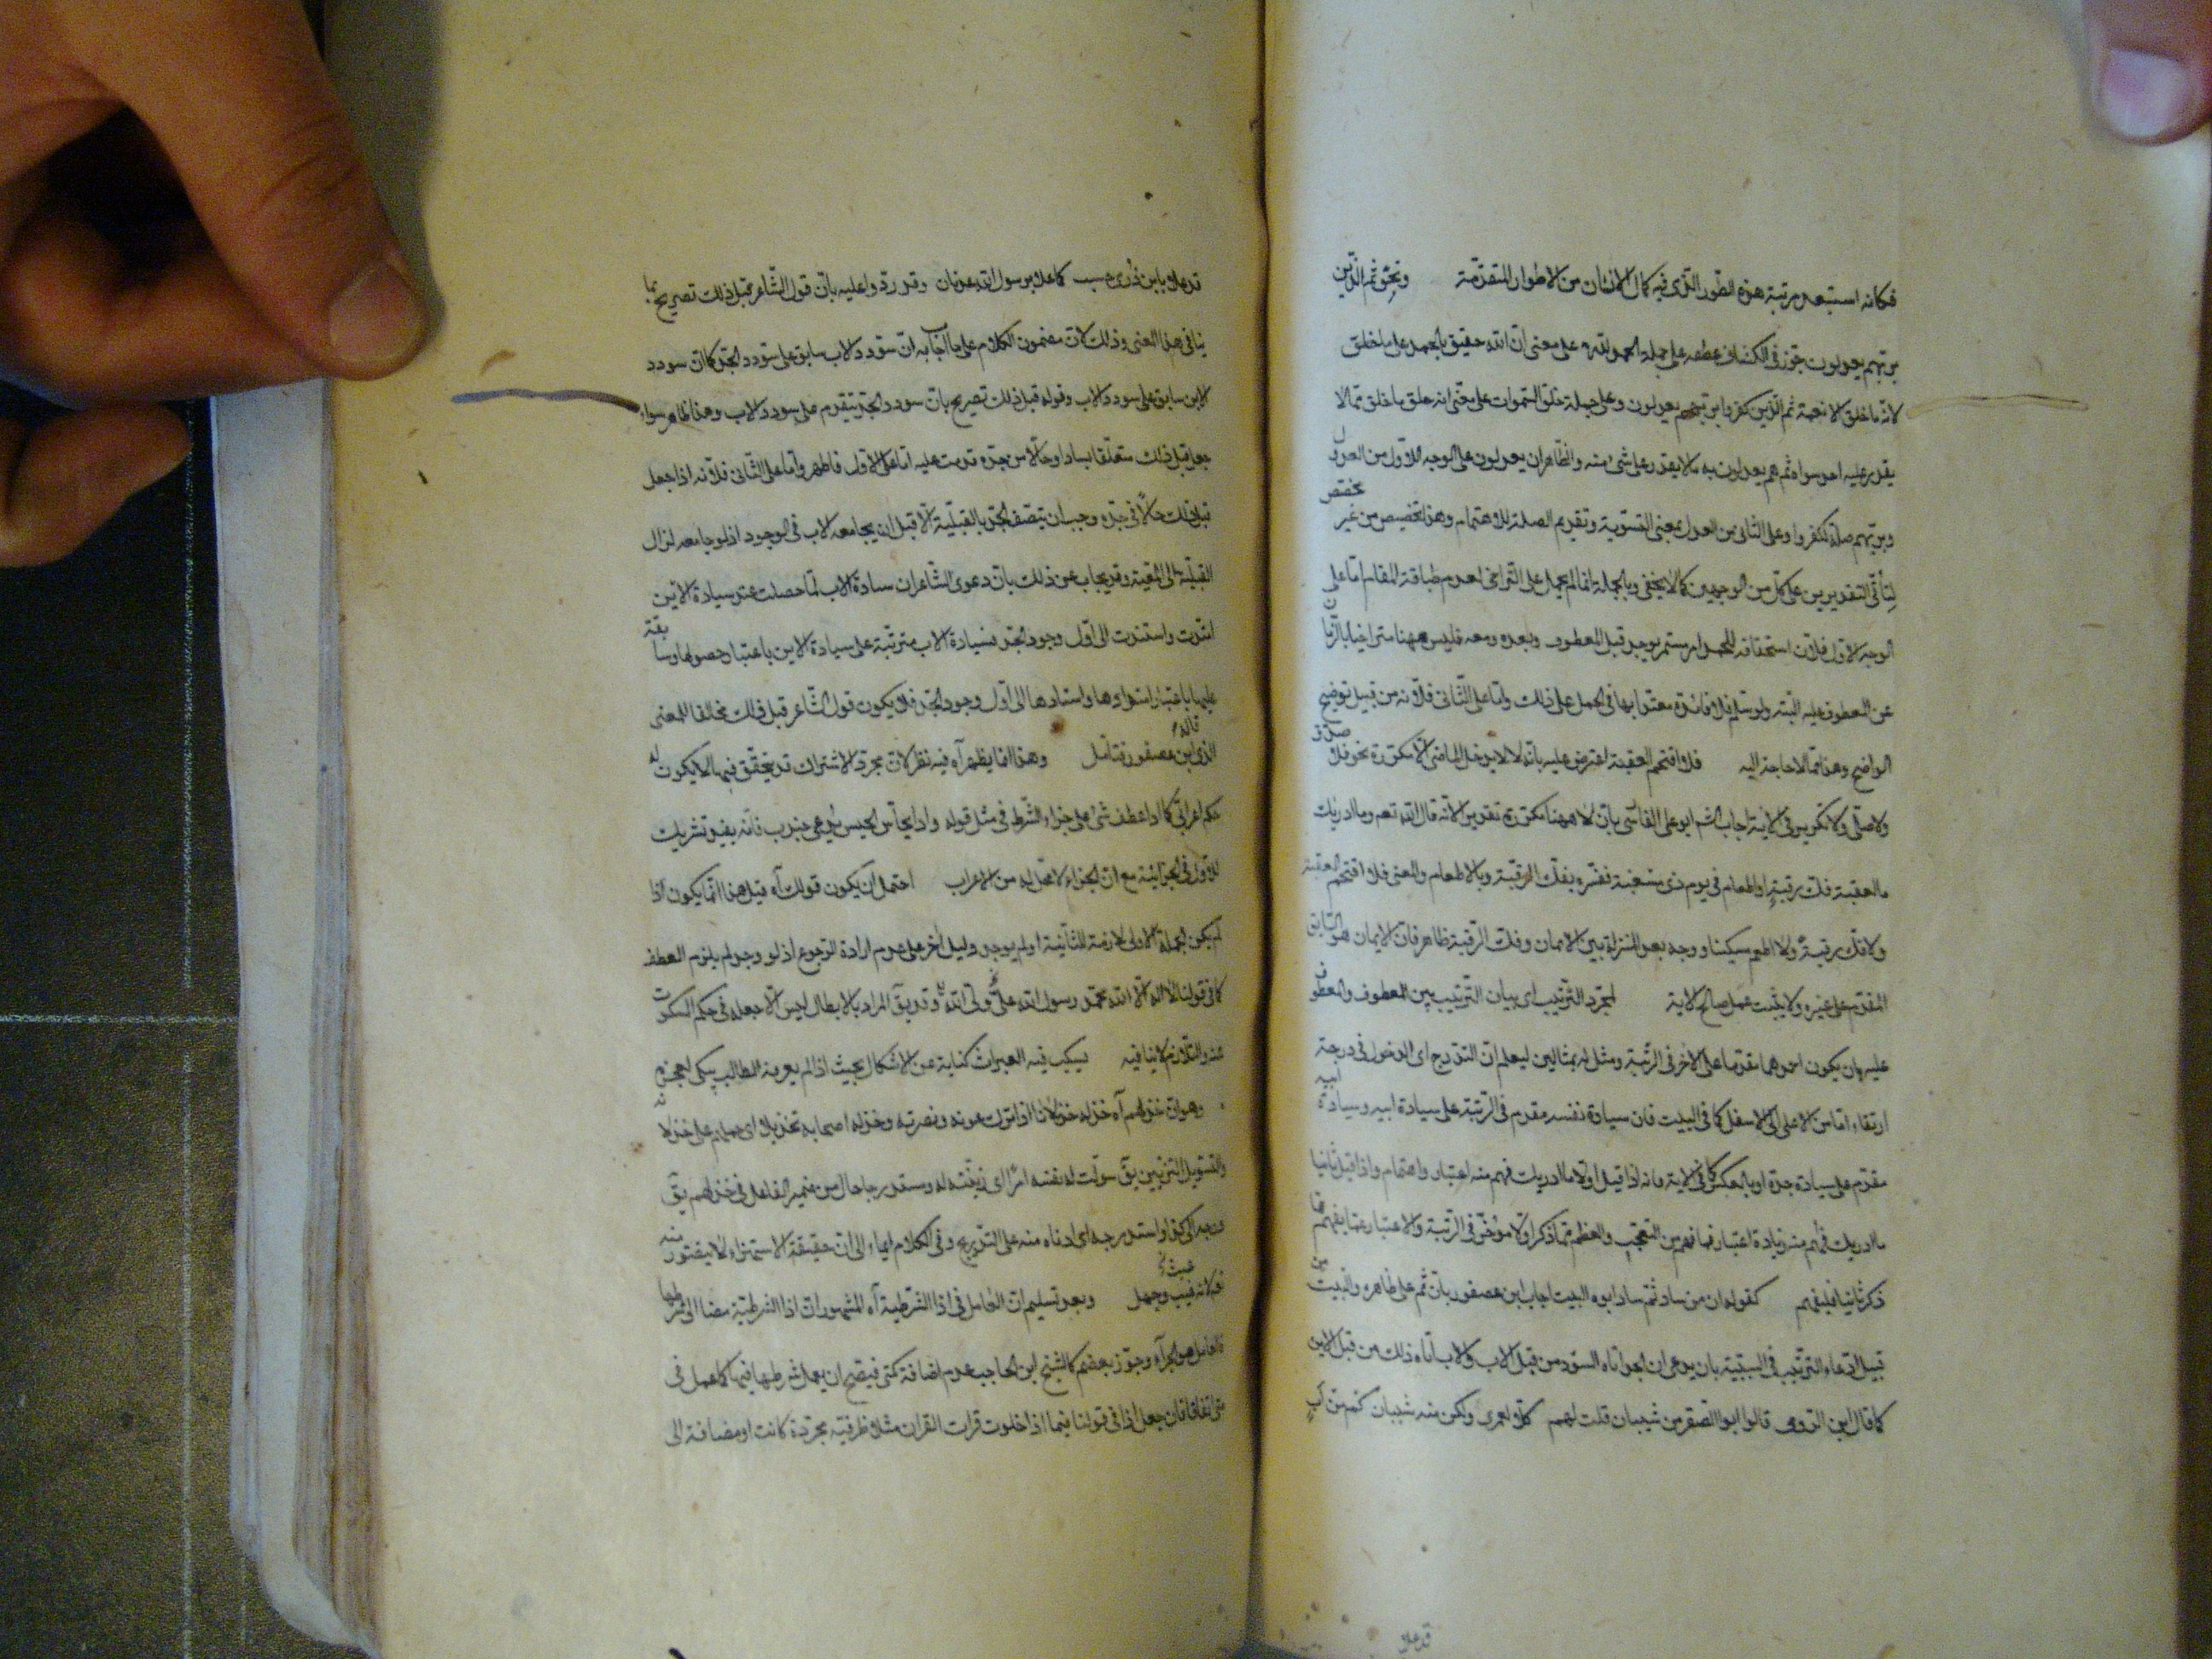 فكانه استبعد مرتبة هذه الطور الذى فيه كمال الانسان من الاطوار المتقدمة ونحو ثم الذين
بربهم يعدلون جوز فى الكشاف عطفه على جملة الحمد لله على معنى ان الله حقيق بالحمد على ما خلق
لانه ما خلق الا نعمة ثم الذين كفروا بربهم يعدلون وعلى جملة خلق السموات على معنى انه خلق ما خلق مما لا
يقدر عليه احد سواه ثم هم يعدلون به ما لا يقدر على شئ منه والظاهر ان يعدلون على الوجه الاول من العدول
وبربهم صلة لكفروا وعلى الثانى من العدل بمعنى التسوية وتقديم الصلة للاهتمام وهذا تخصيص من غير مخصص
لتأتى التقديرين على كل من الوجهين كما لا يخفى وبالجملة انما لم يحمل على التراخى لعدم طباقة المقام اما على
الوجه الاول فلان استحقاقه للحمد امر مستمر يوجد قبل المعطوف وبعده ومعه فليس ههنا متراخيا بالزمان
عن المعطوف عليه البتة ولو سلم فلا فائدة معتدا بها فى الحمل على ذلك واما على الثانى فلانه من قبيل توضيح
الواضح وهذا مما لا حاجة اليه فلا اقتحم العقبة اعترض عليه بان لا لا يدخل الماضى الا مكررة نحو فلا صدق
ولا صلى ولا تكرير فى الاية اجاب الشيخ ابو على الفاسى بان لا ههنا مكررة تقديرا لانه قال الله تعالى وما ادريك
ما العقبة فك رقبة او اطعام فى يوم ذى مسغبة ففسره بفك الرقبة وبالاطعام والمعنى فلا اقتحم العقبة
ولا فك رقبة ولا اطعم مسكينا ووجه بعد المنزلة بين الايمان وفك الرقبة ظاهر فان الايمان هو السابق
المقدم على غيره ولا يثبت عمل صالح الا به لمجرد الترتيب اى بيان الترتيب بين المعطوف والمعطوف
عليه بان يكون احدهما مقدما على الاخر فى الرتبة ومثل له بمثالين ليعلم ان التدرج اى الدخول فى درجة
ارتقاء اما من الاعلى الى الاسفل كما فى البيت فان سيادة نفسه مقدم فى الرتبة على سيادة ابيه وسيادة ابيه
مقدم على سيادة جده او بالعكس كما فى الاية فانه اذا قيل اولا ما ادريك فهم منه اعتبار واهتمام واذا قيل ثانيا
ما ادريك فهم منه زيادة اعتبار فما فهم من التعجب والعظم مما ذكر اولا مؤخر فى الرتبة والاعتبار عما يفهم مما
ذكر ثانيا فليفهم كقوله ان من ساد ثم ساد ابوه البيت اجاب ابن عصفور بان ثم على ظاهره والبيت من
قبيل ادعاء الترتيب فى السببية بان يدعى ان الجد اتاه السودد من قبل الاب والاب اتاه ذلك من قبل الابن
كما قال ابن الرومى قالوا ابو الصقر من شيبان قلت لهم كلا لعمرى ولكن منه شيبان كم من اب
قد علا
قد علا بابن ذرى حسب كما علا برسول الله عدنان وقد ردوا عليه بان قول الشاعر قبل ذلك تصريح بما
ينافى هذا المعنى وذلك لان مضمون الكلام على ما اجاب به ان سودد الاب سابق على سودد الجد كما ان سودد
الابن سابق على سودد الاب وقوله قبل ذلك تصريح بان سودد الجد يتقدم على سودد الاب وهذا ظاهر سواء
جعل قبل ذلك متعلقا بساد او حالا من جده قدمت عليه اما على الاول فاظهر واما على الثانى فلانه اذا جعل
قبل ذلك حالا فى جده وجب ان يتصف الجد بالقبلية الا قبل ان يجامعه الاب فى الوجود اذ لو جامعه لزال
القبلية الى المعية وقد يجاب عن ذلك بان دعوى الشاعر ان سيادة الاب لما حصلت عند سيادة الابن
امتدت واستندت الى اول وجود الجد فسيادة الاب مترتبة على سيادة الابن باعتبار حصولها وسابقة
عليها باعتبار استمرادها واسنادها الى اول وجود الجد فلا يكون قول الشاعر قبل ذلك مخالفا للمعنى
الذى قاله ابن عصفور فتامل وهذا انما يظهر آه فيه نظر لان مجرد الاشتراك قد يتحقق فيما لا يكون له
حكم اعرابى كما اذا عطف شئ على جزاء الشرط فى مثل قوله واذا يحاس الحيس يدعى جندب فانه يفيد تشريك
للاول فى الجزائية مع ان الجزاء لا محل له من الاعراب احتمل ان يكون قولك آه قيل هذا انما يكون اذا
لم يكن الجملة الاولى لازمة للثانية او لم يوجد دليل اخر على عدم ارادة الرجوع اذ لو وجد لم يلزم العطف
كما فى قولنا لا اله الا الله محمد رسول الله على ولى الله وقد يق المراد بالابطال ليس الا جعله فى حكم السكوت
عنه والتلازم لا ينافيه يسكب فيه العبرات كناية عن الاشكال بحيث اذا لم يعرفه الطالب يبكى لعجزه
وهو ان خذلهم آه خذله خذلانا اذا ترك عونه ونصرته وخذله اصحابه تخذيلا اى حملهم على خذلانه
والتسويل التزيين يق سولت له نفسه امرا اى زينته له ومستدرجا حال من ضمير الفاعل فى خذلهم يق
درجه الى كذا واستدرجه اى ادناه منه على التدريج وفى الكلام ايماء الى ان حقيقة الاستهزاء لا يتصور منه
لانه عبث وجهل وبعد تسليم ان العامل فى اذا الشرطية آه المشهور ان اذا الشرطية مضا الى شرطها
والعامل هو الجزاء وجوز بعضهم كالشيخ ابن الحاجب عدم اضافة كمتى فيصح ان يعمل شرطها فيها كما عمل فى
متى اتفاقا فان جعل اذا فى قولنا فيما اذا خلوت قرات القران مثلا ظرفية مجردة كانت او مضافة الى